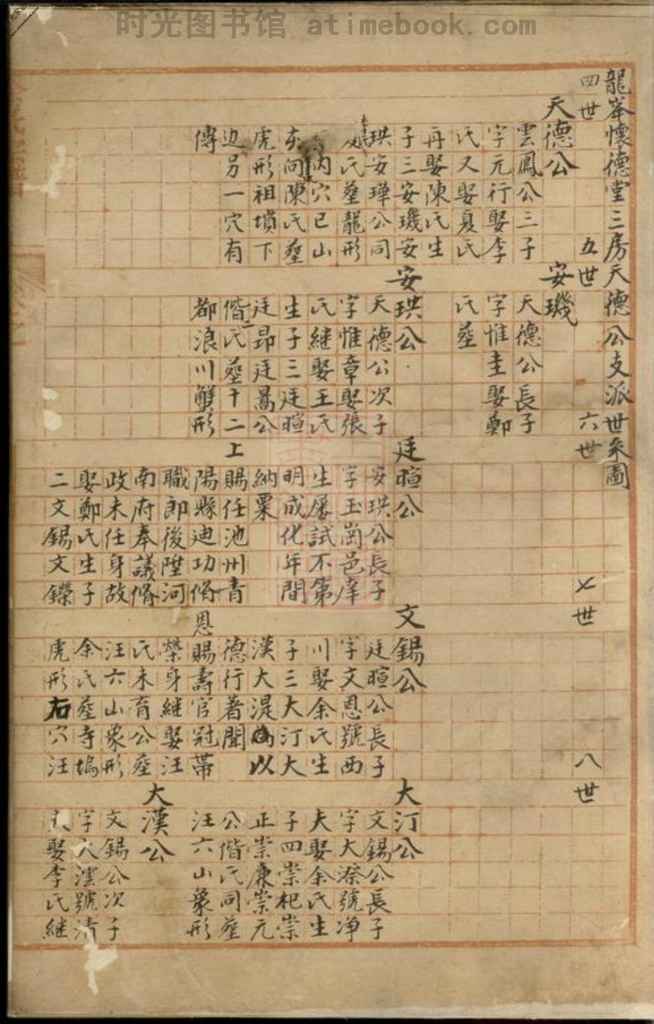 时光图书馆 atimebook.com
龍峯懷德堂三房天德公支派世系圖
四世
五世
六世
七世
八世
天德公
雲鳳公三子
字元行娶李
氏又娶夏氏
再娶陳氏生
子三安璣安
珙安璍公同
氏塟龍形
內穴已山
亥向陳氏塟
虎形祖墳下
边另一穴有
傳
安璣
天德公長子
字惟圭娶鄭
氏塟
安珙公
天德公次子
字惟章娶張
氏継娶王氏
生子三廷暄
廷昻廷暠公
偕氏塟十二
都浪川蠏形
廷暄公
安珙公長子
字玉崗邑庠
生屢試不第
明成化年間
納粟
上賜任池州青
陽縣迪功脩
職郎後陞河
南府奉議脩
政未任身故
娶鄭氏生子
二文錫文鑠
文錫公
廷暄公長子
字文恩號西
川娶余氏生
子三大汀大
漢大湜以
德行著聞
恩賜壽官冠帶
榮身継娶汪
氏未育公塟
汪六山象形
余氏塟寺塢
虎形右穴汪
大汀公
文錫公長子
字大溁號净
夫娶余氏生
子四崇杞崇
正崇康崇元
公偕氏同塟
汪六山象形
大漢公
文錫公次子
字大澐號清
娶李氏継